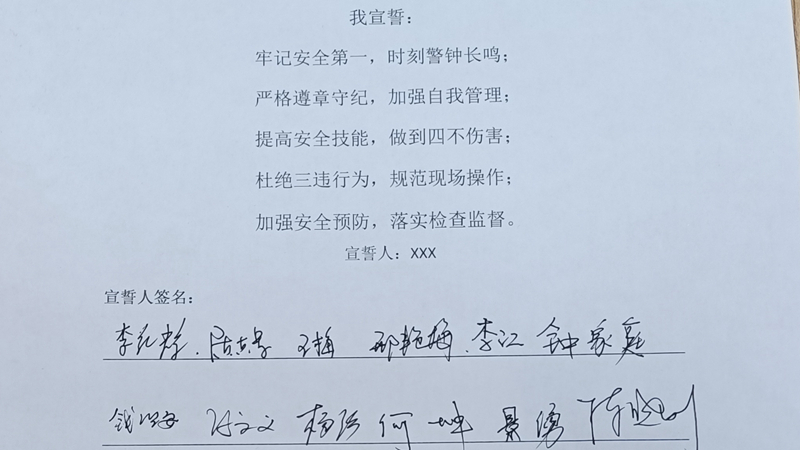 我宣誓：
牢记安全第一，时刻警钟长鸣；
严格遵章守纪，加强自我管理；
提高安全技能，做到四不伤害；
杜绝三违行为，规范现场操作；
加强安全预防，落实检查监督。
宣誓人：XXX
宣誓人签名：
王梅 邢艳梅 李江 钟家庭
杨强 何 坤 景勇